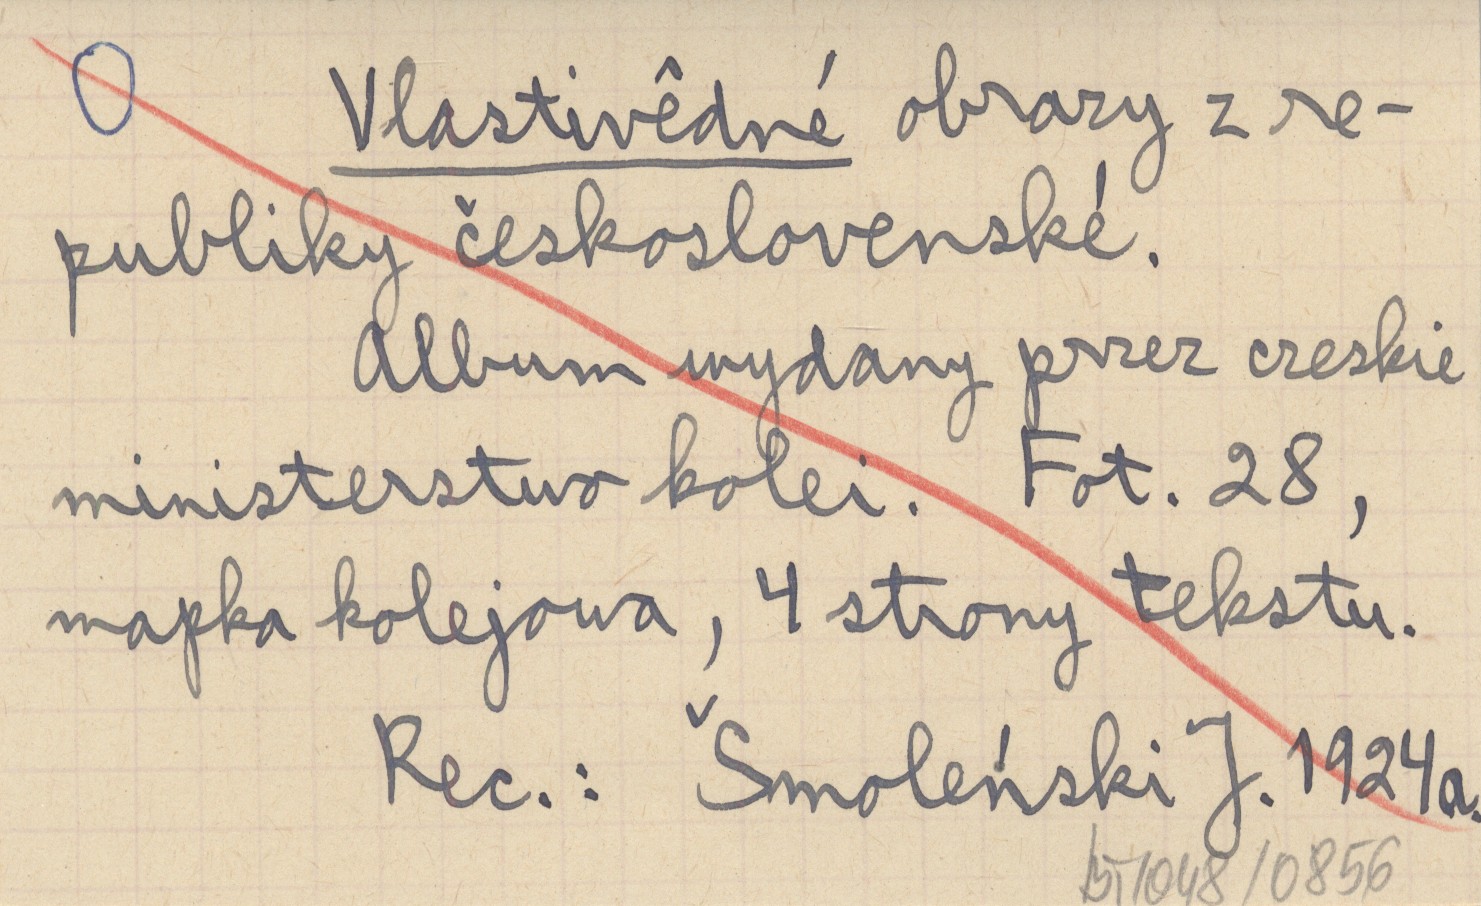 Vlastivêdné obrazy z re-
publiky československé.
Album wydany przez czeskie
ministerstwo kolei. Fot. 28,
mapka kolejowa, 4 strony tekstu.
Rec.: Šmoleński J. 1924a.
BT/048/0856